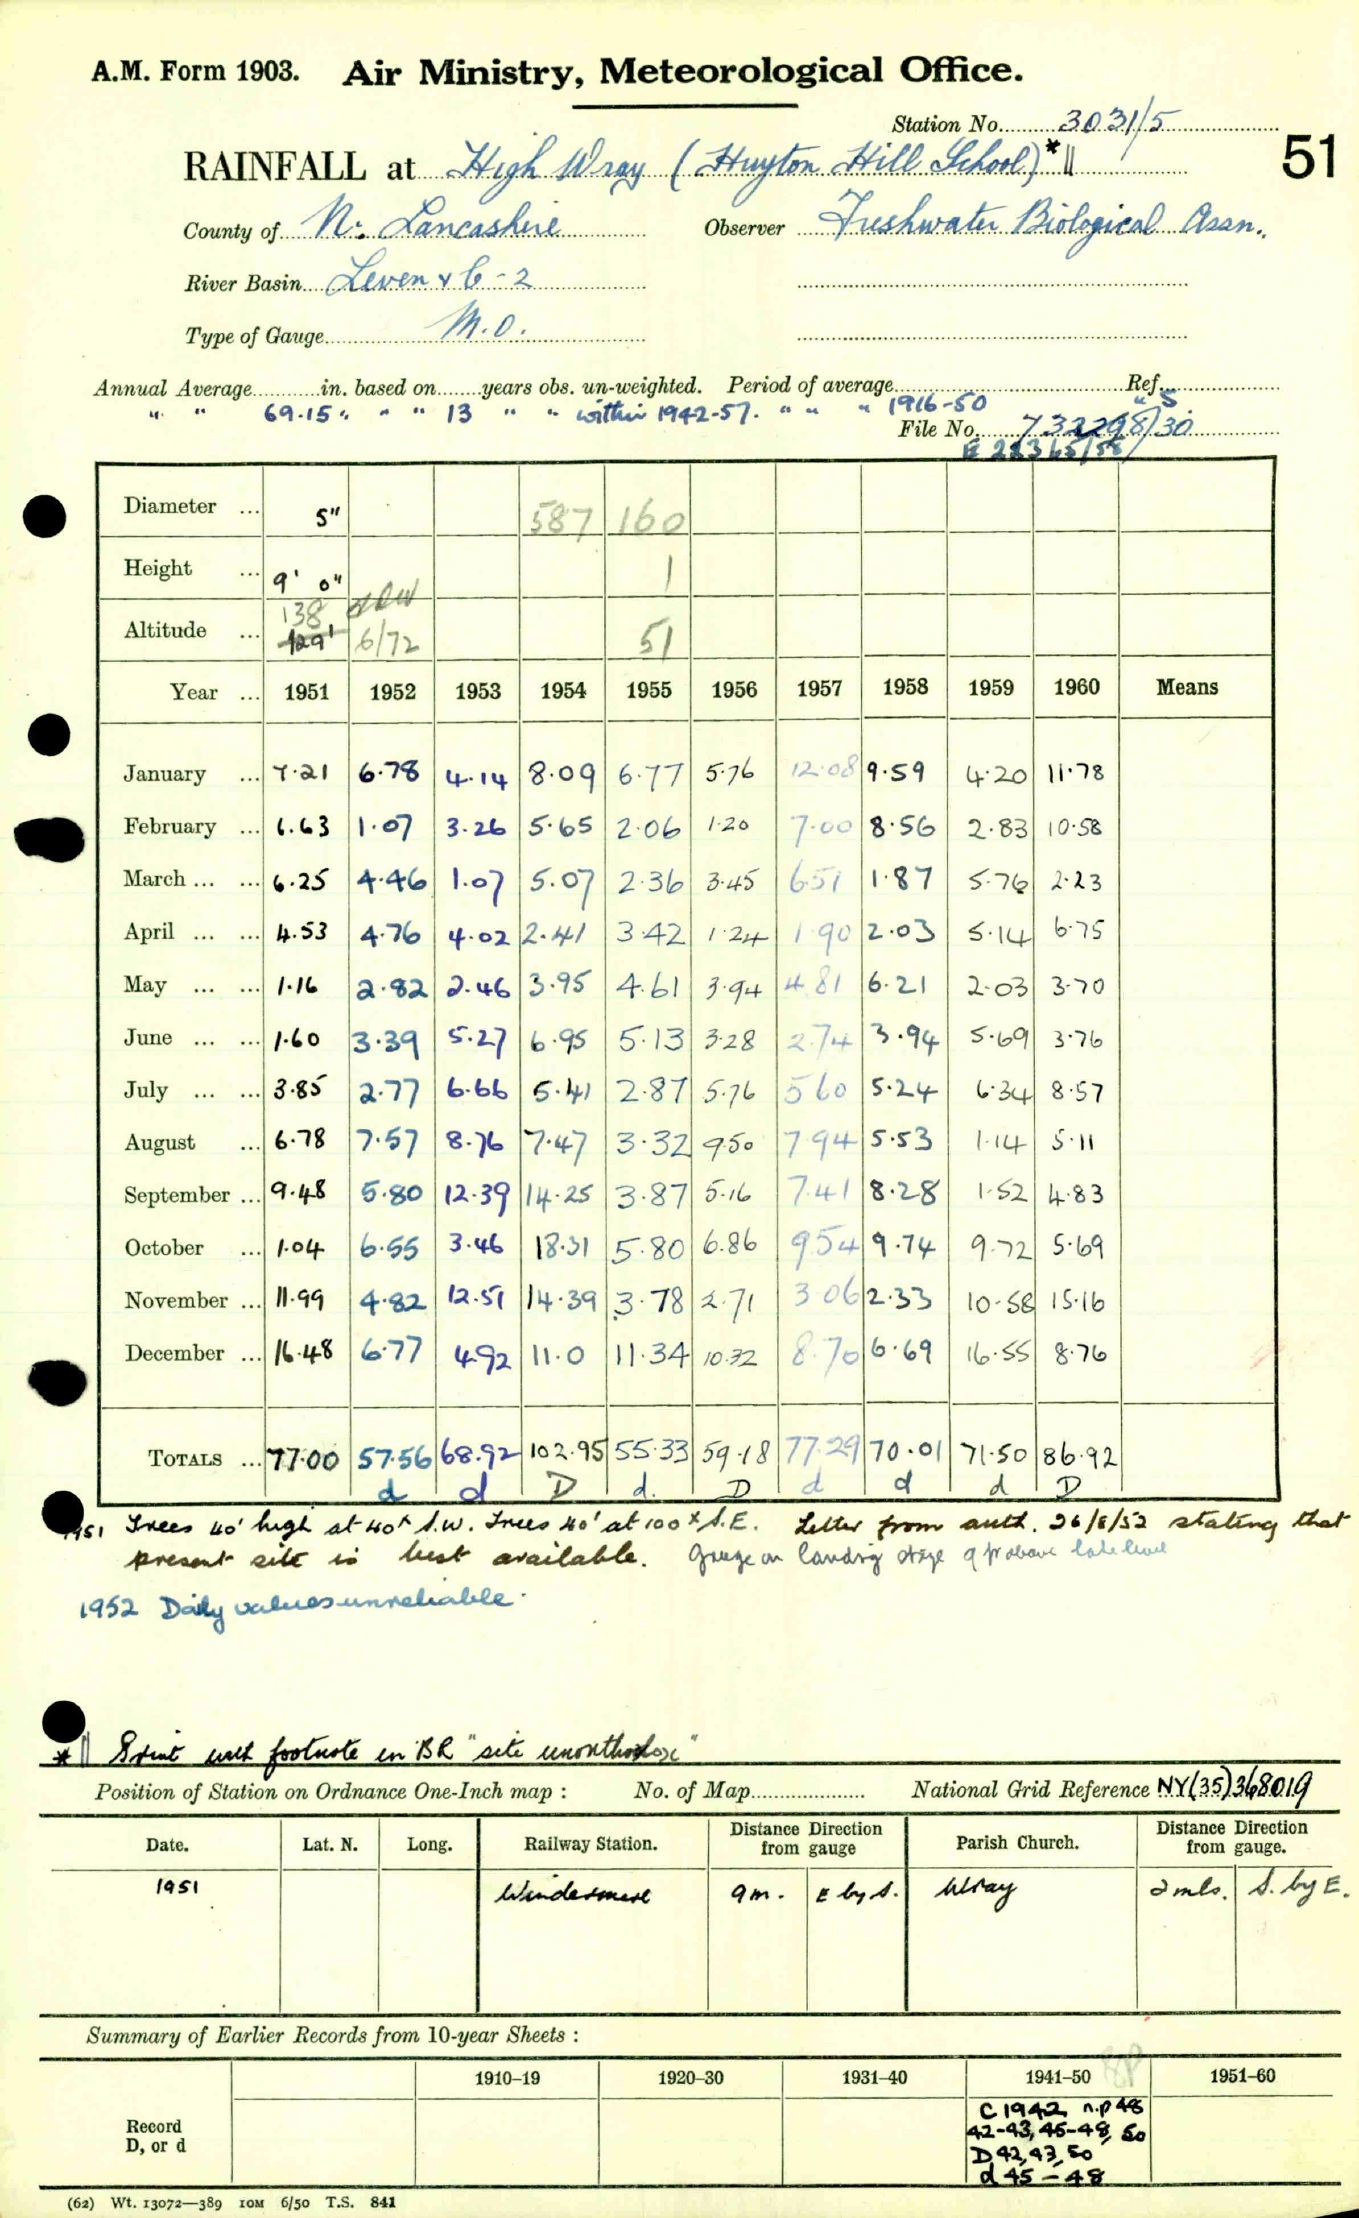 A.M. Form 1903. Air Ministry, Meteorological Office.
Station No. 3031/5
51
RAINFALL at High Wray (Huyton Hill School) * ||
County of N. Lancashire Observer Freshwater Biological Assn.
River Basin Leven & C-2
Type of Gauge M.O.
Annual Average in. based on years obs. un-weighted. Period of average Ref.
" " 69.15 " " " 13 " " within 1942-57. " " " 1916-50 " 5.
File No. 732298/30
E 28365/58
Diameter ... 5" 587 160
Height ... 9' 0" 1
138
Altitude ... 129' 6/72 51
Year ... 1951 1952 1953 1954 1955 1956 1957 1958 1959 1960 Means
January ... 7.21 6.78 4.14 8.09 6.77 5.76 12.08 9.59 4.20 11.78
February ... 6.63 1.07 3.26 5.65 2.06 1.20 7.00 8.56 2.83 10.58
March ... ... 6.25 4.46 1.07 5.07 2.36 3.45 6 51 1.87 5.76 2.23
April ... ... 4.53 4.76 4.02 2.41 3.42 1.24 1 90 2.03 5.14 6.75
May ... ... 1.16 2.82 2.46 3.95 4.61 3.94 4 81 6.21 2.03 3.70
June ... ... 1.60 3.39 5.27 6.95 5.13 3.28 2.74 3.94 5.69 3.76
July ... ... 3.85 2.77 6.66 5.41 2.87 5.76 5 60 5.24 6.34 8.57
August ... 6.78 7.57 8.76 7.47 3.32 9.50 7 94 5.53 1.14 5.11
September ... 9.48 5.80 12.39 14.25 3.87 5.16 7.41 8.28 1.52 4.83
October ... 1.04 6.55 3.46 18.31 5.80 6.86 9 54 9.74 9.72 5.69
November ... 11.99 4.82 12.51 14.39 3.78 2.71 3 06 2.33 10.58 15.16
December ... 16.48 6.77 4.92 11.0 11.34 10.32 8.70 6.69 16.55 8.76
TOTALS ... 77.00 57.56 68.92 102.95 55.33 59.18 77.29 70.01 71.50 86.92
d d D d. D d d d D
1951 Trees 40' high at 40x S.W. Trees 40' at 100x S.E. Letter from auth. 26/8/52 stating that
present site is best available. Gauge on landing stage 9 ft above lake level
1952 Daily values unreliable.
* || Print with footnote in BR "site unorthodox"
Position of Station on Ordnance One-Inch map : No. of Map National Grid Reference NY(35)368019
Date. Lat. N. Long. Railway Station. Distance from gauge Direction Parish Church. Distance from gauge. Direction
1951 Windermere 9m. E by S. Wray 2 mls. S. by E.
Summary of Earlier Records from 10-year Sheets :
1910–19 1920–30 1931–40 1941–50 1951–60
Record
D, or d
C 1942 n.p 48
42-43, 45-48, 50
D 42, 43, 50
d 45 - 48
(62) Wt. 13072—389 10M 6/50 T.S. 841